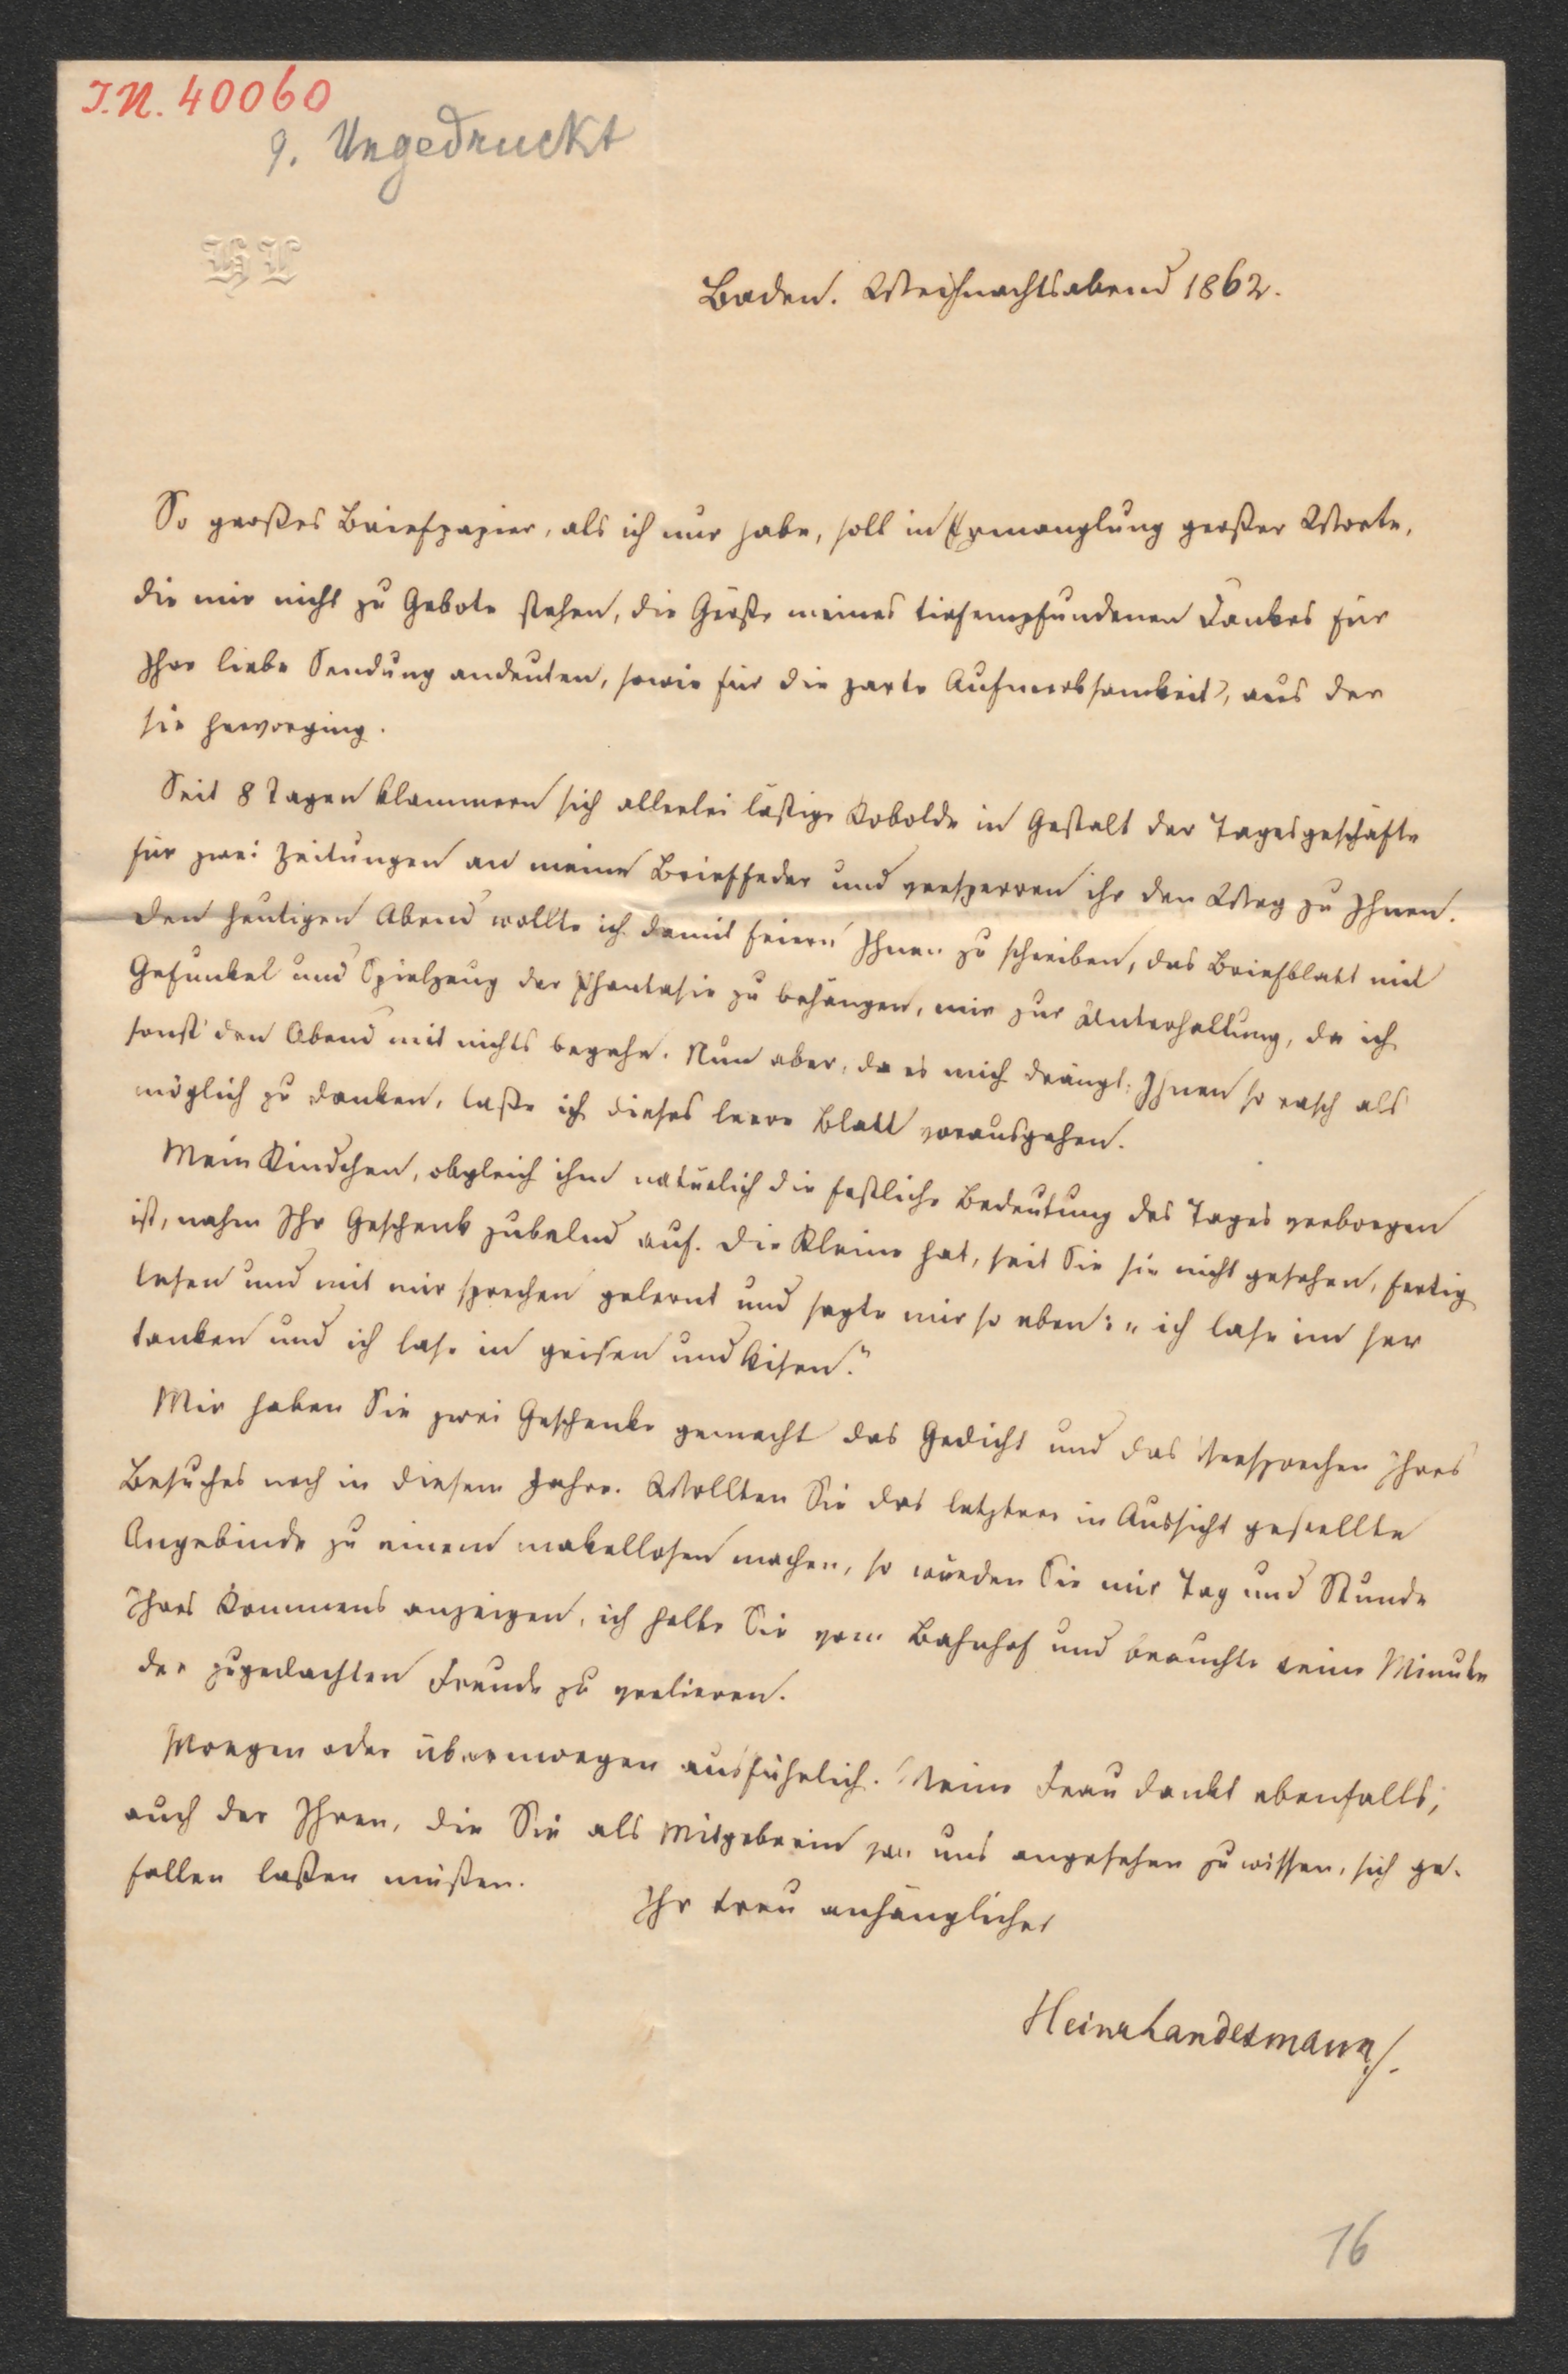 I.N. 40060
9. Ungedruckt
HL
Baden. Weihnachtsabend 1862.
So großes Briefpapier, als ich nur habe, soll in Ermanglung großer Worte,
die mir nicht zu Gebote stehen, die Größe meines tiefempfundenen Dankes für
Ihre liebe Sendung andeuten, sowie für die zarte Aufmerksamkeit, aus der
sie hervorging.
Seit 8 Tagen klammern sich allerlei lästige Kobolde in Gestalt der Tagesgeschäfte
für zwei Zeitungen an meine Brieffeder und versperren ihr den Weg zu Ihnen.
Den heutigen Abend wollte ich damit feiern Ihnen zu schreiben, das Briefblatt mit
Gefunkel und Spielzeug der Phantasie zu behängen, mir zur Unterhaltung, da ich
sonst den Abend mit nichts begehe. Nun aber, da es mich drängt, Ihnen so rasch als
möglich zu danken, laße ich dieses leere Blatt vorausgehen.
Mein Kindchen, obgleich ihm natürlich die festliche Bedeutung des Tages verborgen
ist, nahm Ihr Geschenk jubelnd auf. Die Kleine hat, seit Sie sie nicht gesehen, fertig
lesen und mit mir sprechen gelernt und sagte mir so eben: „ich lase im her
tanken und ich lase in grisen und kisen."
Mir haben Sie zwei Geschenke gemacht das Gedicht und das Versprechen Ihres
Besuches noch in diesem Jahre. Wollten Sie das letztere in Aussicht gestellte
Angebinde zu einem makellosen machen, so würden Sie mir Tag und Stunde
Ihres Kommens anzeigen, ich holte Sie vom Bahnhof und brauchte keine Minute
der zugedachten Freude zu verlieren.
Morgen oder übermorgen ausführlich. Meine Frau dankt ebenfalls,
auch der Ihren, die Sie als Mitgeberin von uns angesehen zu wissen, sich ge-
fallen laßen müßen.
Ihr treu anhänglicher
Heinr Landesmann/.
16